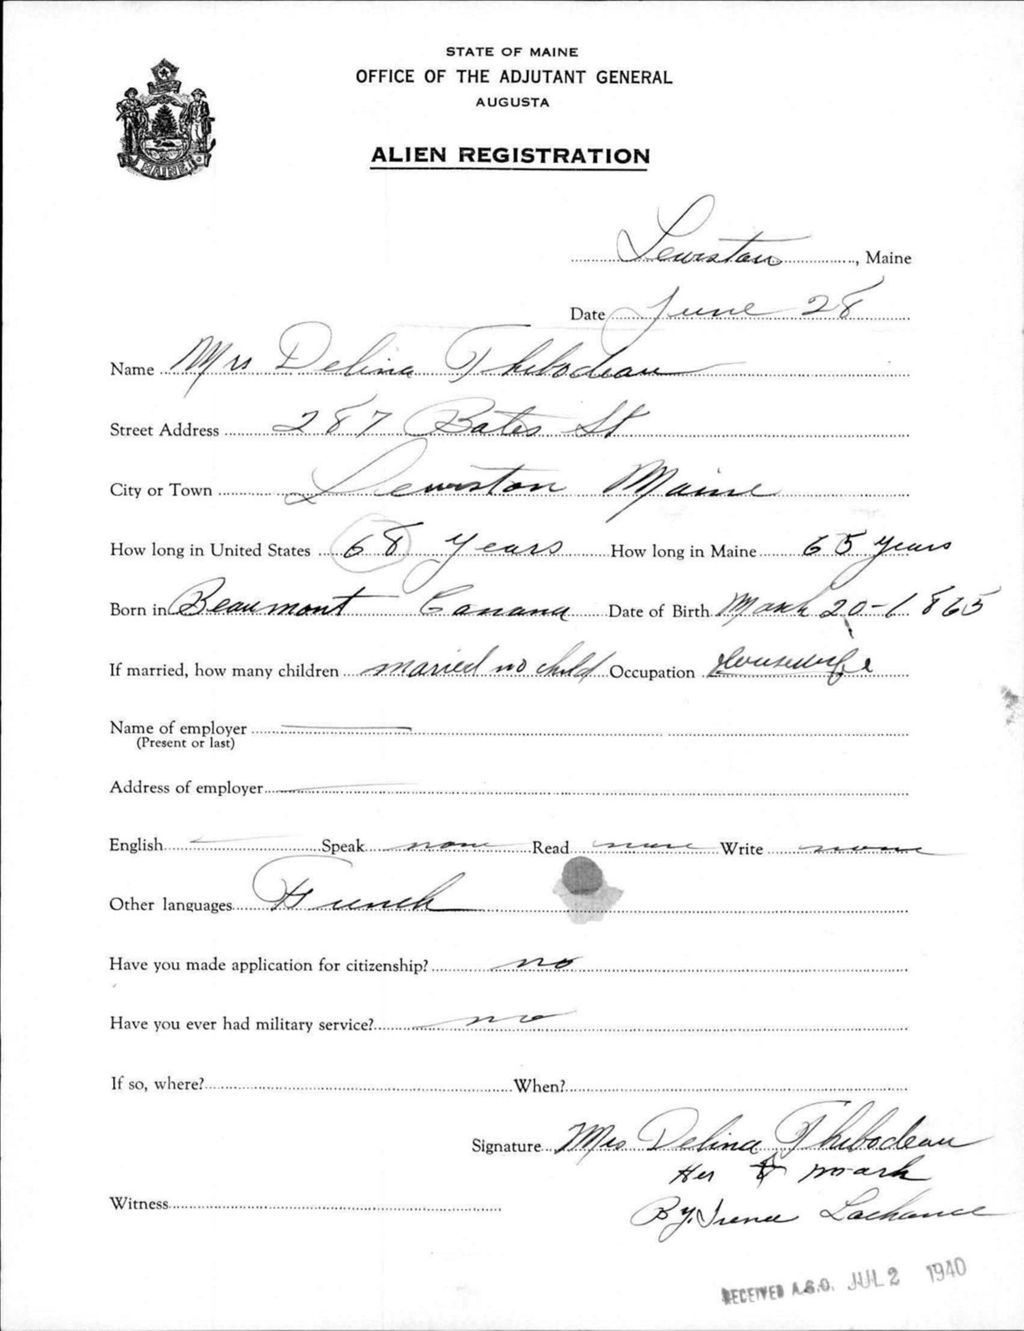 STATE OF MAINE
OFFICE OF THE ADJUTANT GENERAL
AUGUSTA
ALIEN REGISTRATION
MAINE
Lewiston, Maine
Date June 28
Name Mrs Delina Thibodeau
Street Address 287 Bates St
City or Town Lewiston Maine
How long in United States 68 years How long in Maine 65 years
Born in Beaumont Canana Date of Birth March 20-1865
If married, how many children married no child Occupation Housewife
Name of employer
(Present or last)
Address of employer
English Speak none Read none Write none
Other languages French
Have you made application for citizenship? no
Have you ever had military service? no
If so, where? When?
Signature Mrs Delina Thibodeau
Her mark
Witness By Irene Lachance
RECEIVED A.G.O. JUL 2 1940